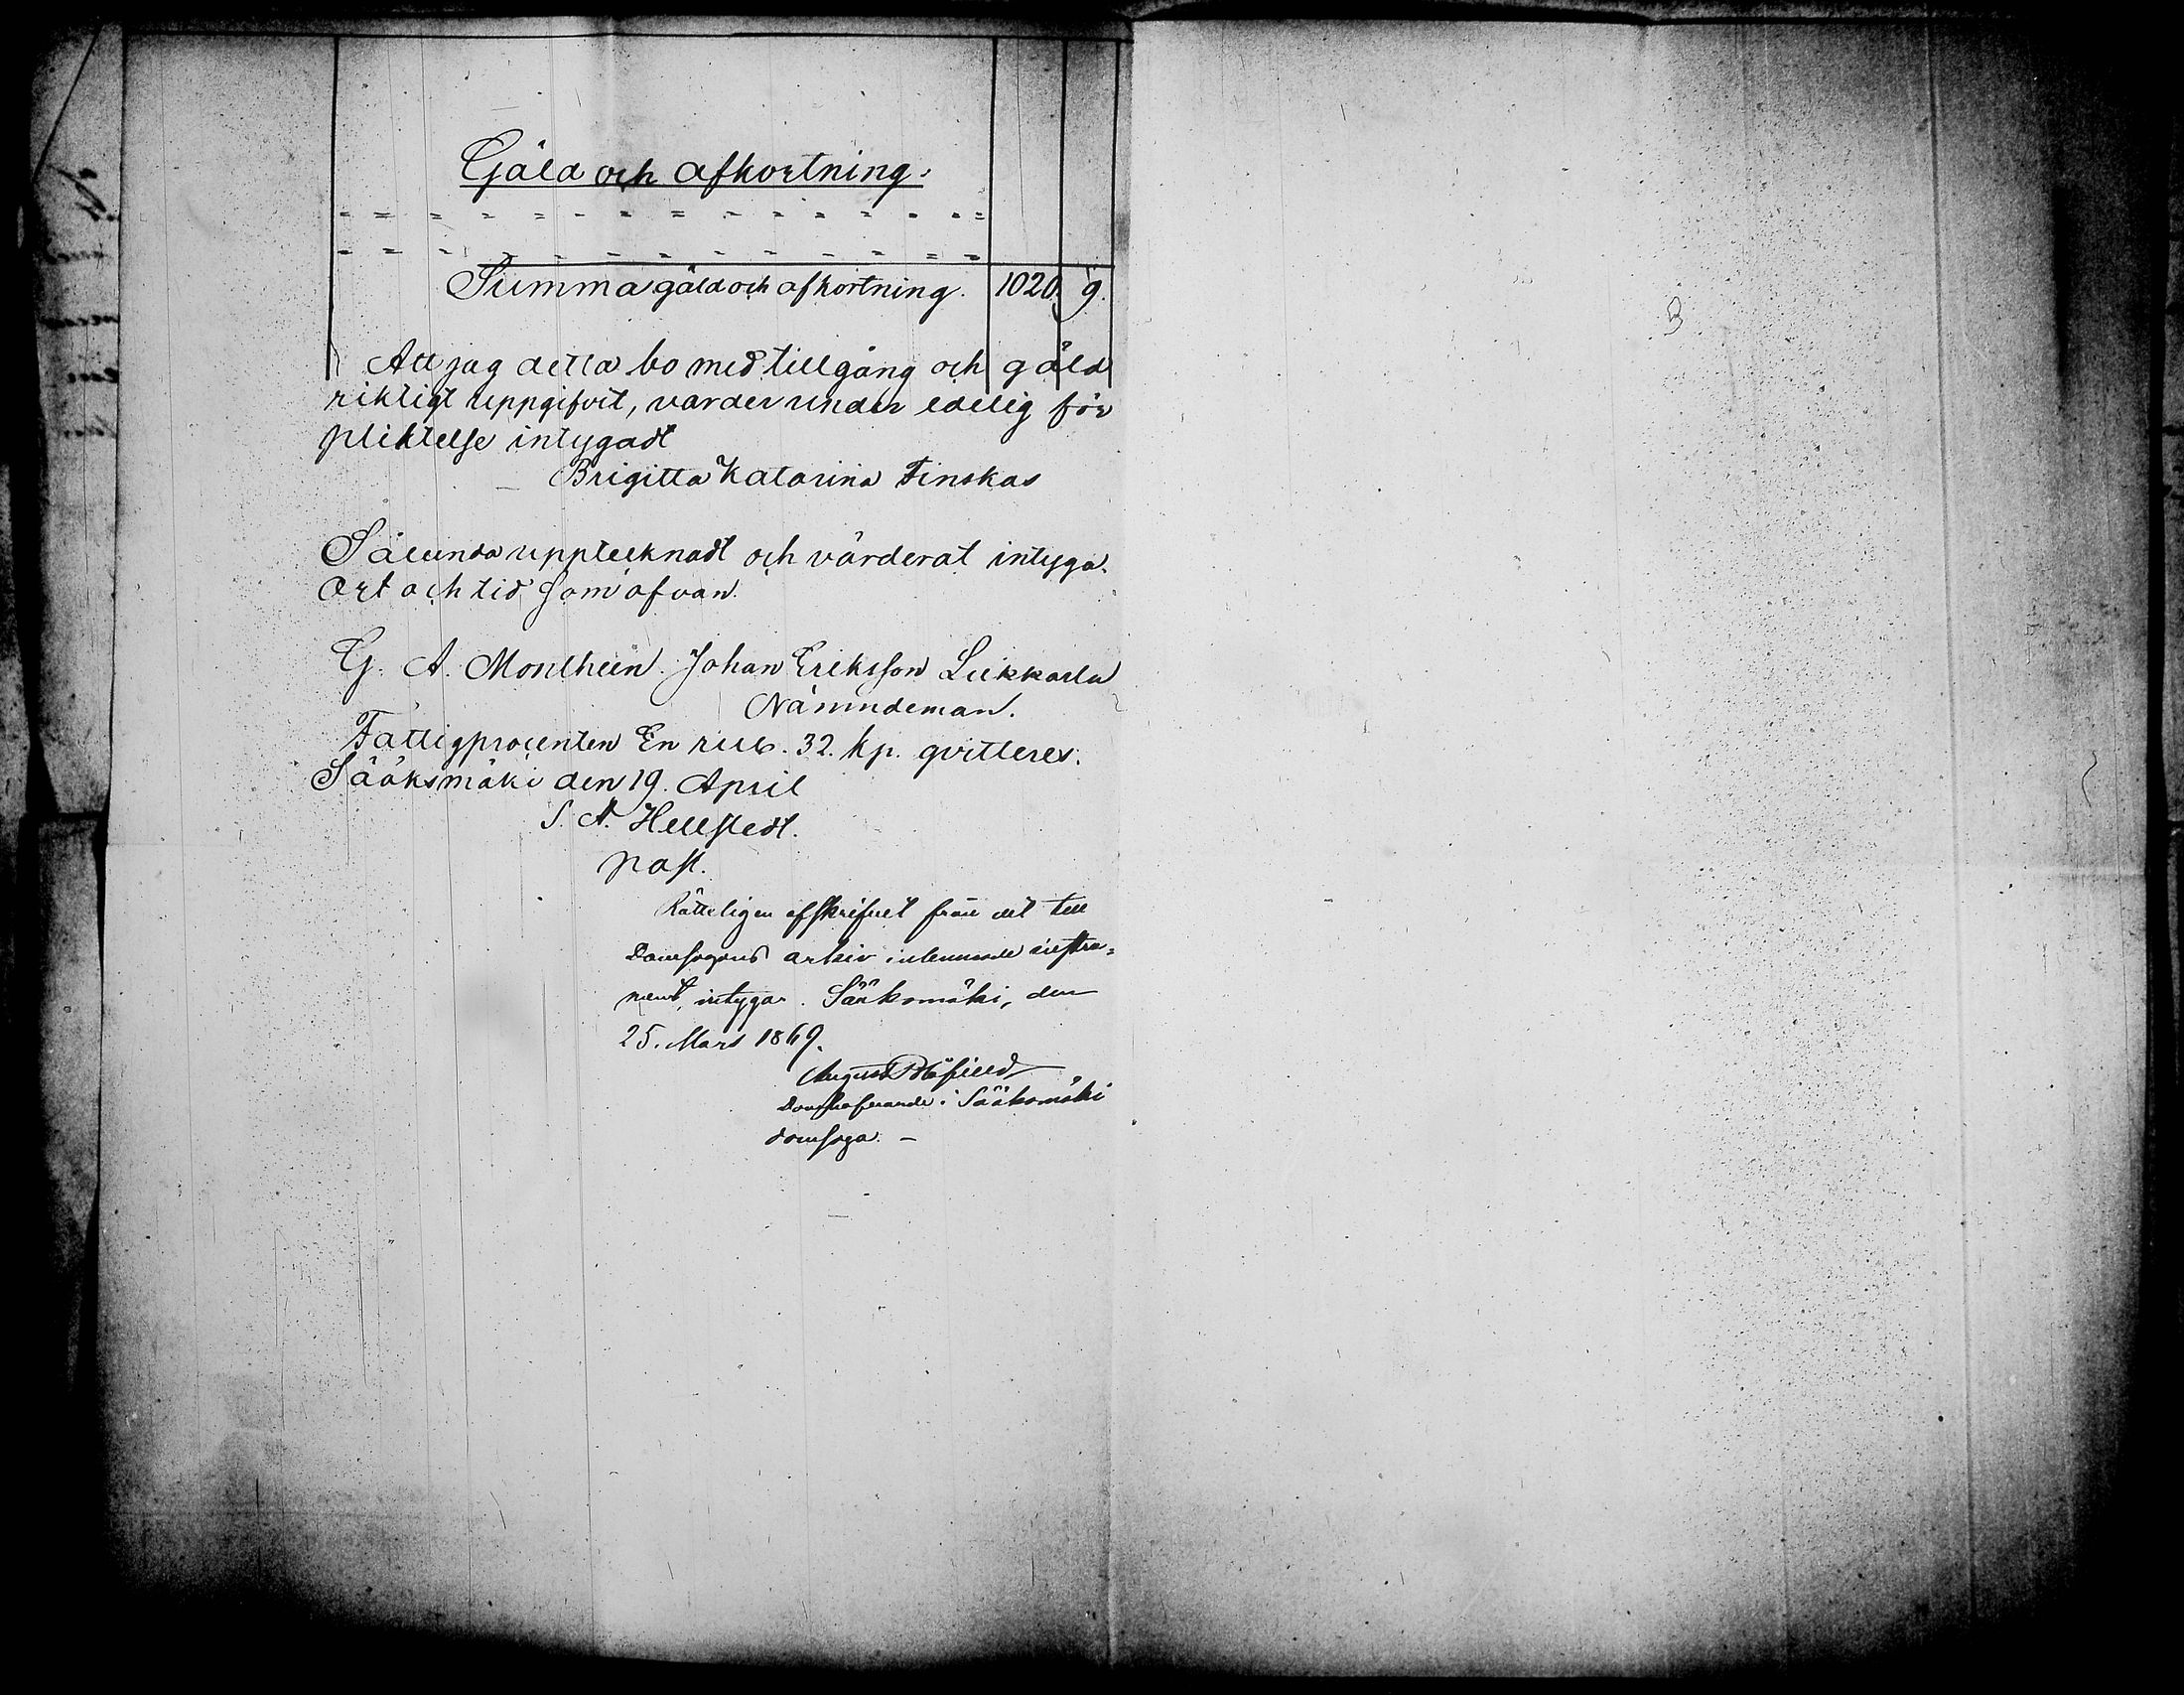 Gäld och afkortning.
Summa gäld och afkortning. 1020. 9.
Att jag detta bo med tillgång och gäld
riktigt uppgifvit, varder under edelig för
pliktelse intygadt
Brigitta Katarina Finskas
Sålunda upptecknadt och värderat intyga.
Ort och tid som ofvan.
G. A. Monthein. Johan Eriksson Liukkarla
Nämndeman.
Fattigprocenten En rub. 32. kp. qvitteres.
Sääksmäki den 19. April
S. A. Hellstedt.
past.
Rätteligen afskrifvet från det till
Domsagans arkiv inlemnade instru-
ment, intygar. Sääksmäki, den
25. Mars 1869.
August
Domhafvande i Sääksmäki
domsaga. -